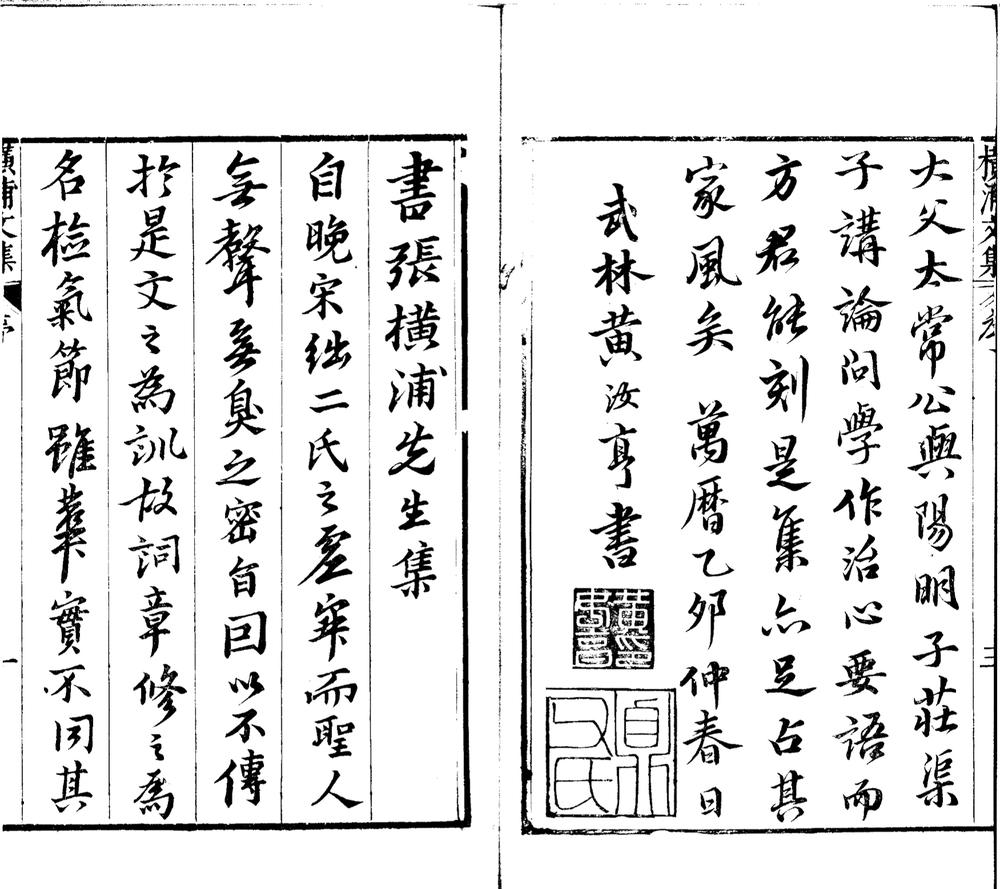 橫浦文集
三
大父太常公與陽明子莊渠
子講論問學作治心要語而
方君能刻是集亦足占其
家風矣 萬曆乙卯仲春日
武林黃汝亨書
書張橫浦先生集
自晚宋絀二氏之虛寂而聖人
無聲無臭之密旨回以不傳
於是文之為訓故詞章修之為
名檢氣節雖華實不同其
橫浦文集
序
一